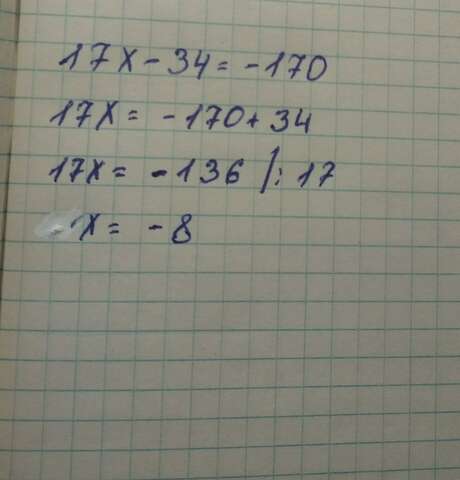 17x - 34 = -170
17x = -170 + 34
17x = -136 /: 17
x = -8